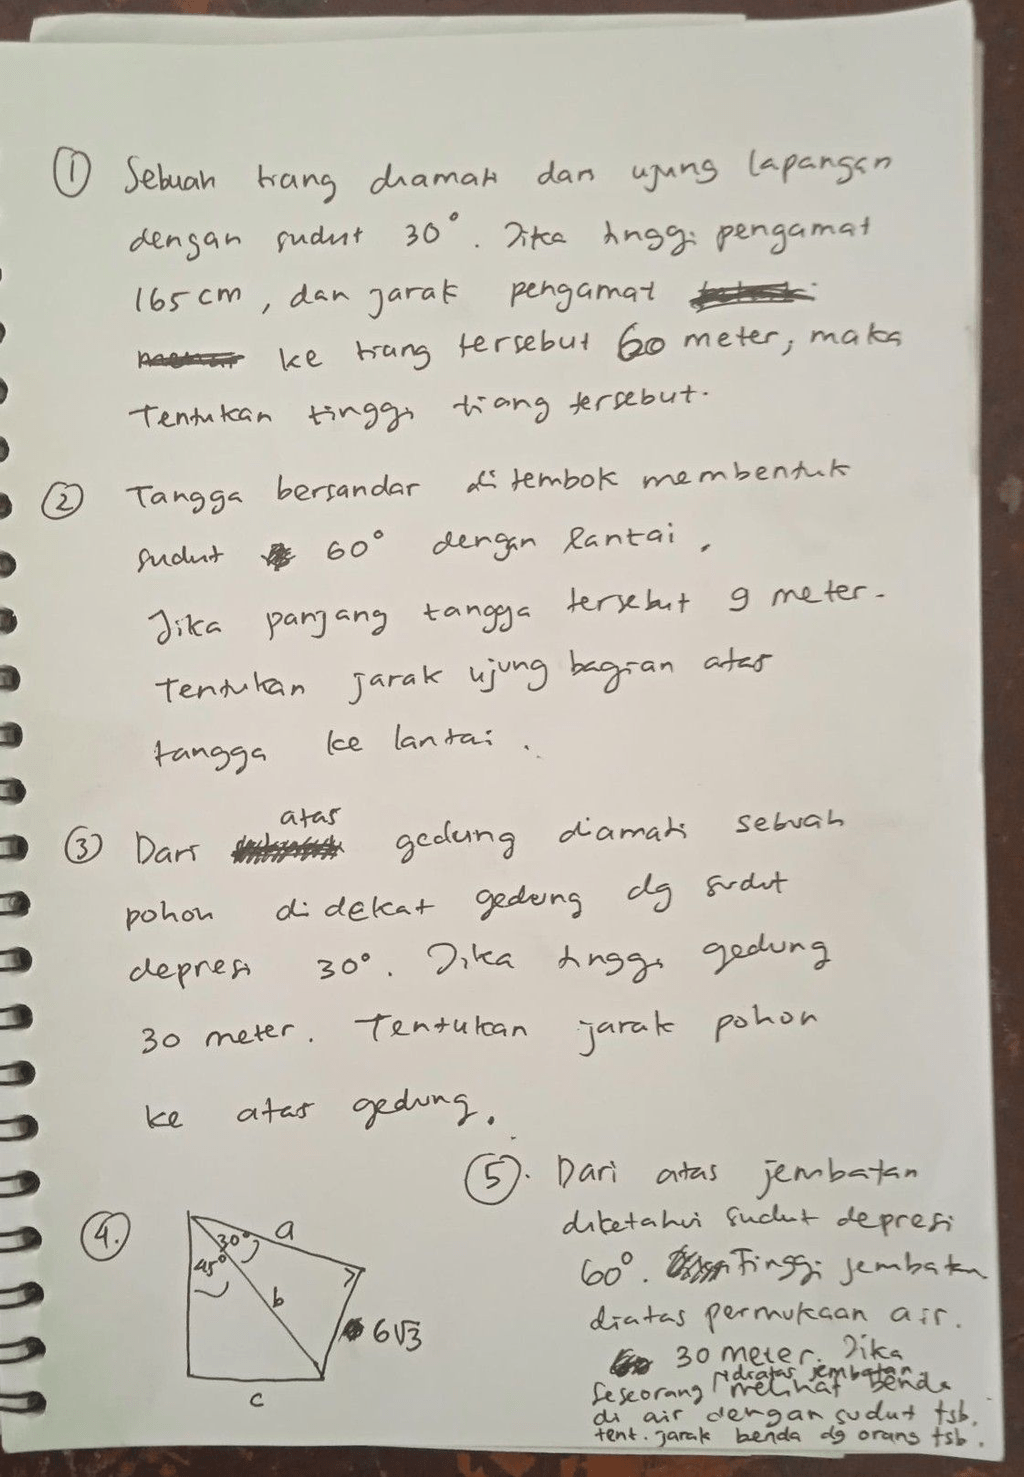 ① Sebuah tiang diamati dari ujung lapangan
dengan sudut 30°. Jika tinggi pengamat
165 cm, dan jarak pengamat
ke tiang tersebut 60 meter, maka
Tentukan tinggi tiang tersebut.
② Tangga bersandar di tembok membentuk
sudut 60° dengan lantai.
Jika panjang tangga tersebut 9 meter.
Tentukan jarak ujung bagian atas
tangga ke lantai.
③ Dari atas gedung diamati sebuah
pohon didekat gedung dg sudut
depresi 30°. Jika tinggi gedung
30 meter. Tentukan jarak pohon
ke atas gedung.
④.
30°
a
45°
b
6√3
c
⑤. Dari atas jembatan
diketahui sudut depresi
60°. Tinggi jembatan
diatas permukaan air.
30 meter. Jika
seseorang diatas jembatan melihat benda
di air dengan sudut tsb.
tent. jarak benda dg orang tsb.